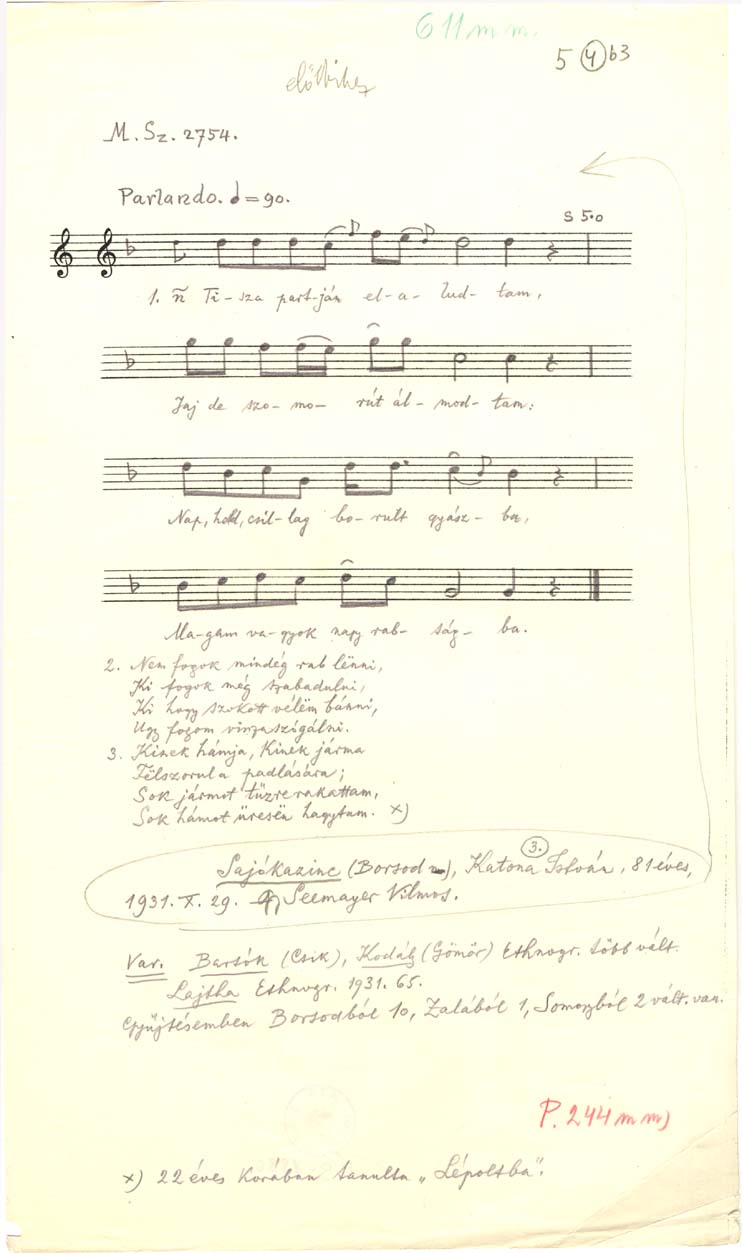 611 m m.
5 4 b3
előbbihez
M. Sz. 2754.
Parlando. = 90.
S 5.0
1. ñ Ti-sza part-ján el-a-lud-tam,
Jaj de szo-mo-rút ál-mod-tam:
Nap, hold, csil-lag bo-rult gyász-ba,
Ma-gam va-gyok nagy rab-ság-ba.
2. Nem fogok mindég rab lënni,
Ki fogok még szabadulni,
Ki hogy szokott vélëm bánni,
Ugy fogom viszaszógálni.
3. Kinek hámja, Kinek járma
Fëlszorul a padlására;
Sok jármot tüzre rakattam,
Sok hámot üresën hagytam. x)
3.
Sajókazinc (Borsod m), Katona István, 81 éves,
1931. X. 29. Seemayer Vilmos.
Var. Bartók (Csik), Kodály (Gömör) Ethnogr. több vált.
Lajtha Ethnogr. 1931. 65.
Gyüjtésemben Borsodból 10, Zalából 1, Somogyból 2 vált. van.
P. 244 m m)
x) 22 éves korában tanulta „Lépoltba".